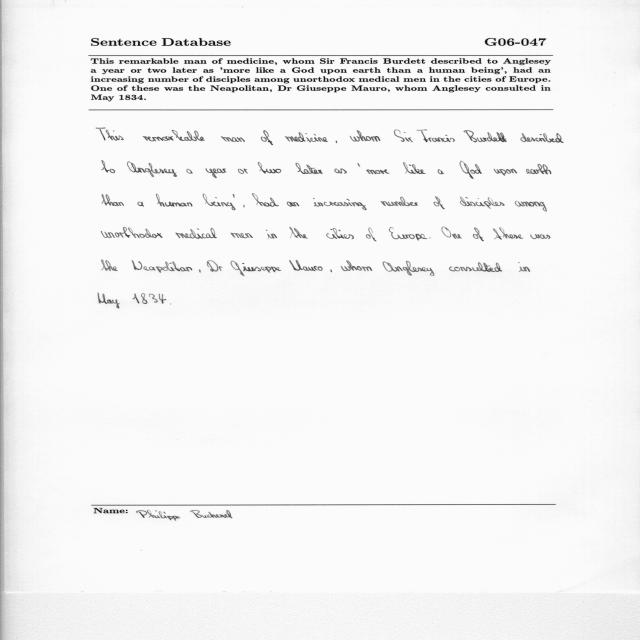 Sentence Database G06-047
This remarkable man of medicine, whom Sir Francis Burdett described to Anglesey
a year or two later as 'more like a God upon earth than a human being', had an
increasing number of disciples among unorthodox medical men in the cities of Europe.
One of these was the Neapolitan, Dr Giuseppe Mauro, whom Anglesey consulted in
May 1834.
This remarkable man of medicine, whom Sir Francis Burdett described
to Anglesey a year or two later as 'more like a God upon earth
than a human being', had an increasing number of disciples among
unorthodox medical men in the cities of Europe. One of these was
the Neapolitan, Dr Giuseppe Mauro, whom Anglesey consulted in
May 1834.
Name: Philippe